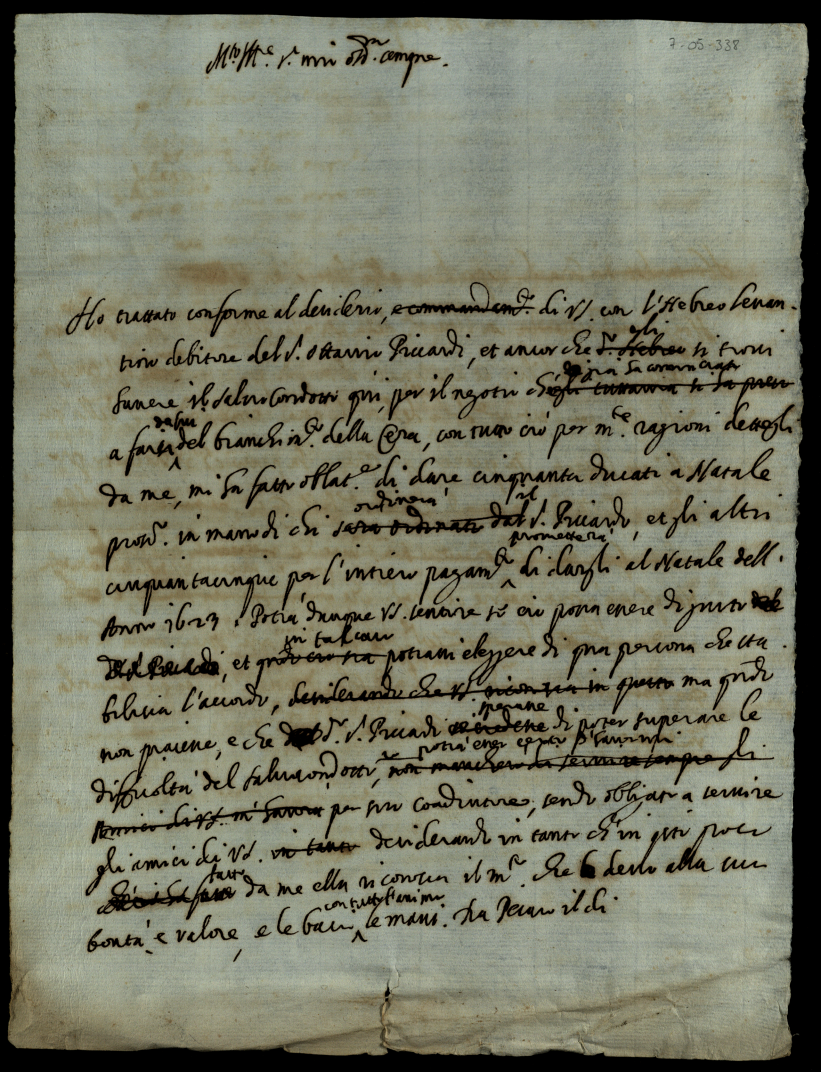 7-05-338
M.to Ill.e S.r mio oss.mo sempre.
Ho trattato conforme al desiderio, e commandam.to di VS. con l'Hebreo levan-
tino debitore del S.r Ottavio Piccardi, et ancor che egli si trovi
havere il salvocondotto qui, per il negotio ch' di già ha cominciato
a farsi del bianchim.to della Cera, con tutto ciò per m.te ragioni dettegli
da me, mi ha fatto oblat.e di dare cinquanta ducati a Natale
pross.o in mano di chi ordinerà il S.r Piccardi, et gli altri
cinquantacinque per l'intiero pagam.to prometterà di dargli al Natale dell'
Anno 1623. Potrà dunque VS. sentire se ciò possa essere di gusto
et in tal caso potrassi eleggere di qua persona che sta-
bilisca l'accordo, desiderando che VS. riconosca in questo ma q.ndo
non piacesse, e che d.o S.r Piccardi sperasse di poter superare le
difficoltà del salvacondotto, potrà esser certo
Amici di VS. per suo conduttore, sendo obligato a servire
gli amici di VS. in tanto desiderando in tanto ch'in q.sto poco
fatto da me ella riconosca il m.to che devo alla sua
bontà e valore, e le bacio con tutto l'animo le mani. Da Pesaro il dì